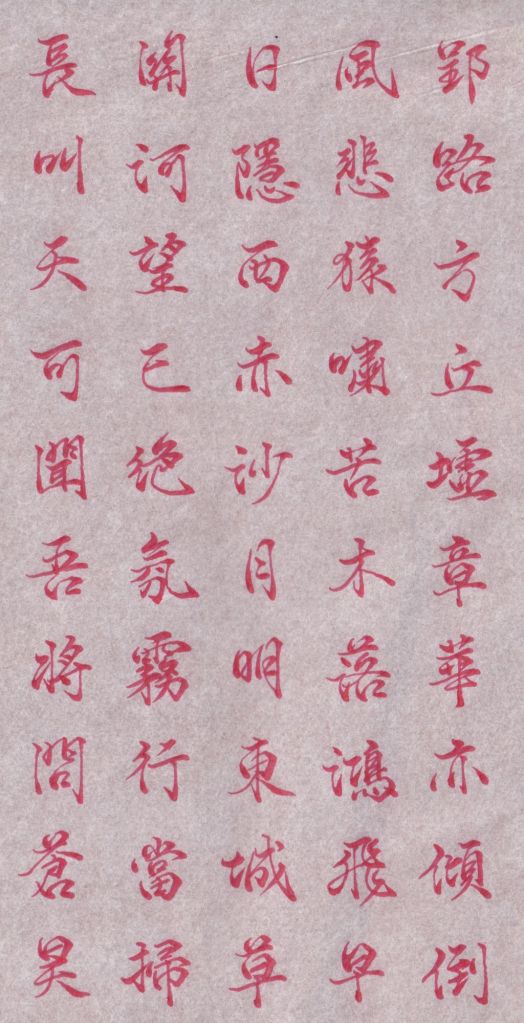 郢路方丘墟章華亦傾倒
風悲猿嘯苦木落鴻飛早
日隱西赤沙月明東城草
關河望已絕氛霧行當掃
長叫天可聞吾將問蒼昊